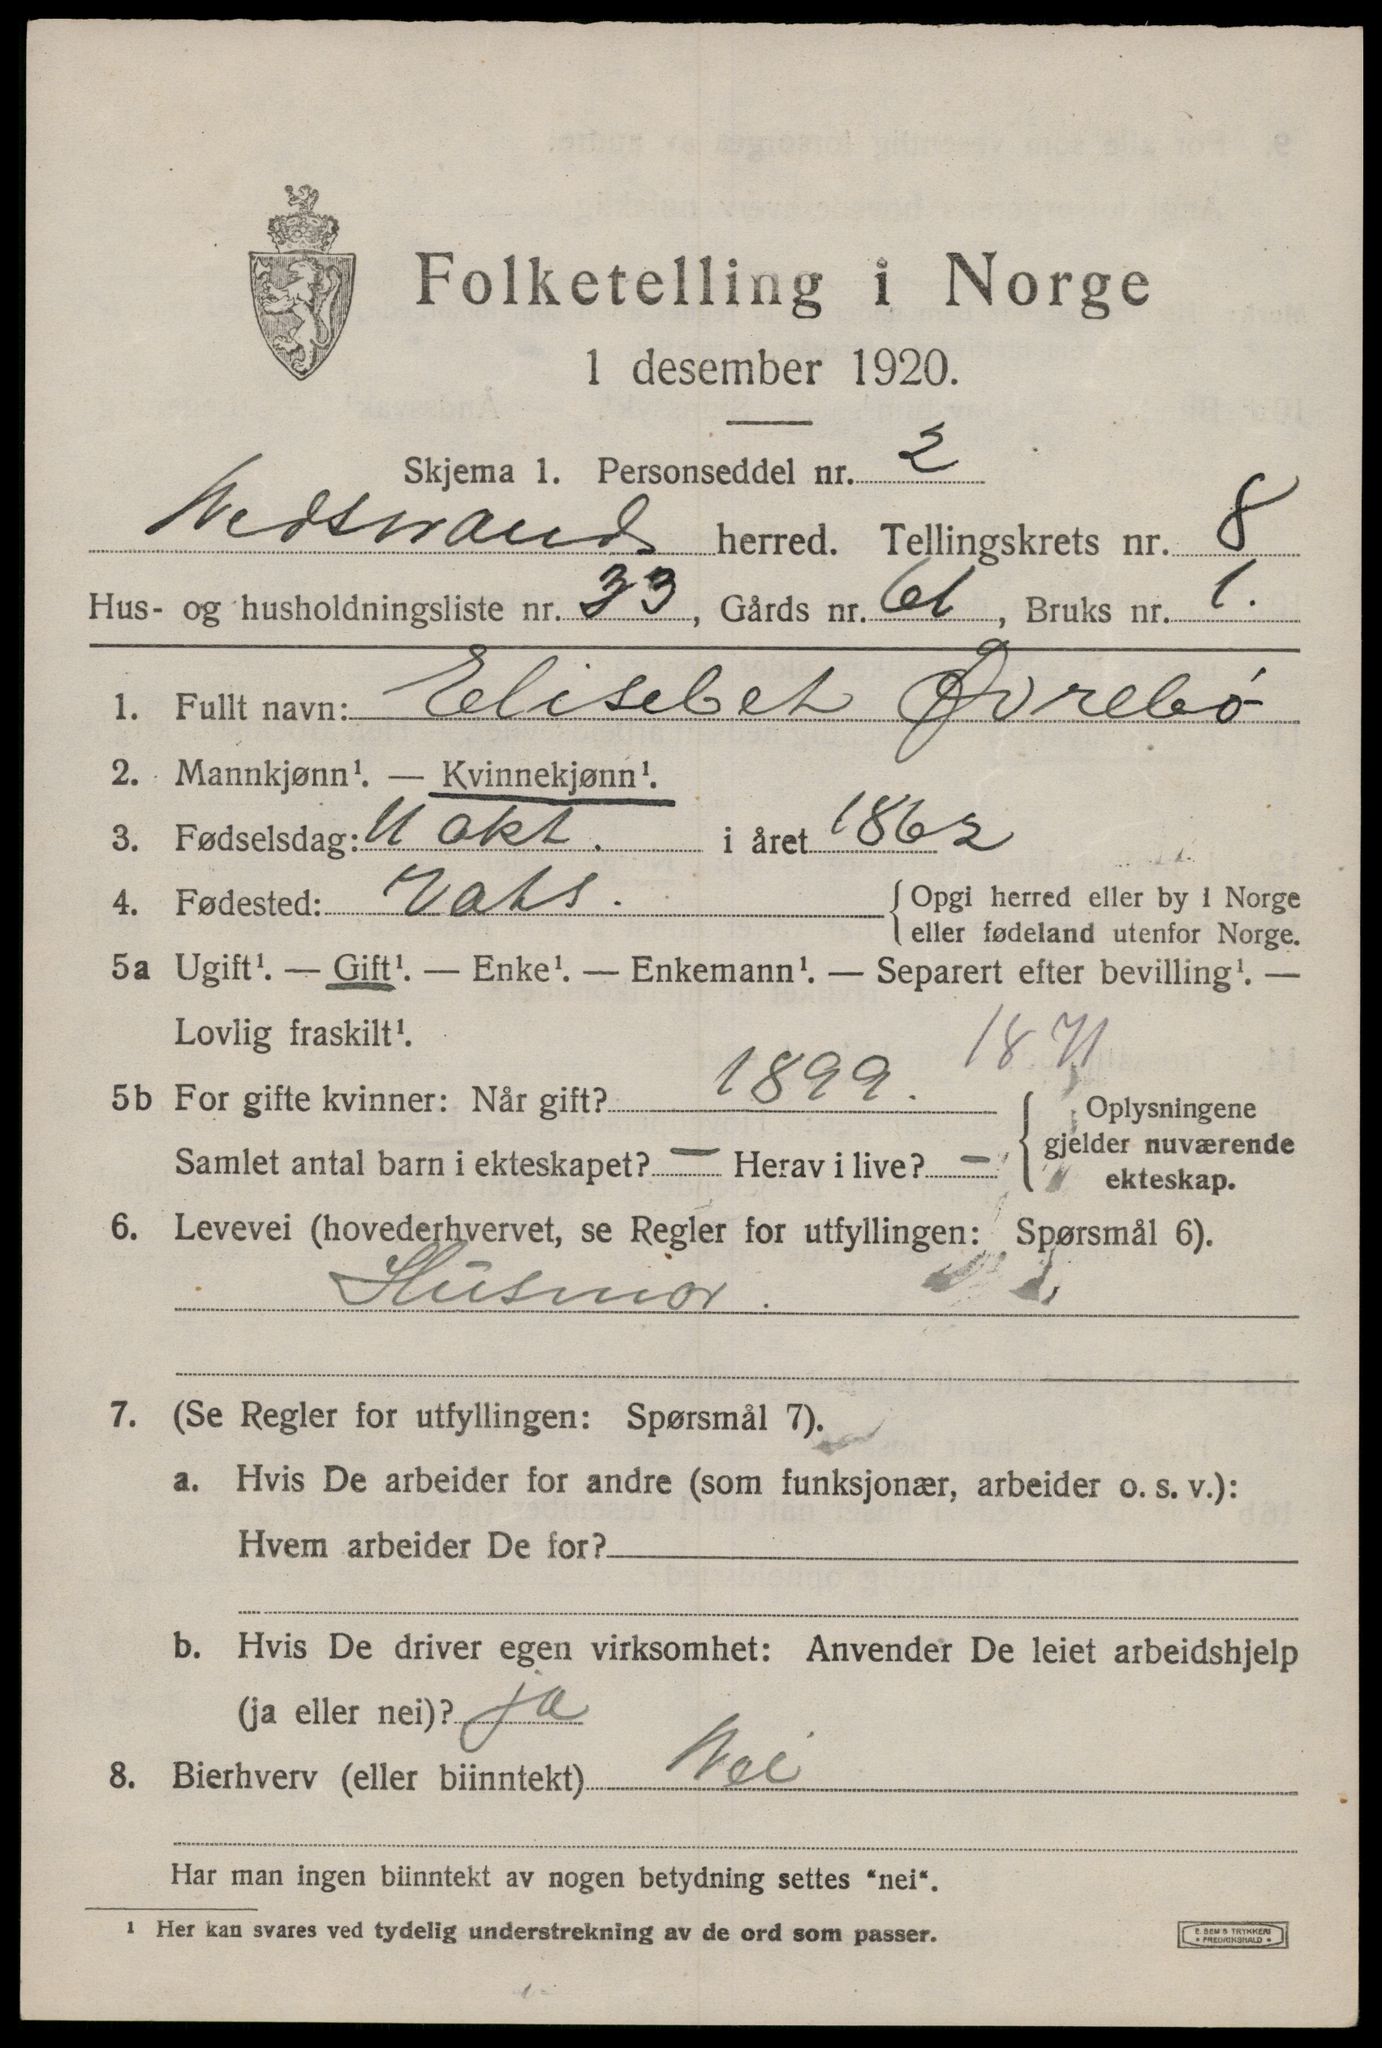 Folketelling i Norge
1 desember 1920.
Skjema 1. Personseddel nr. 2
Nedstrand herred. Tellingskrets nr. 8
Hus- og husholdningsliste nr. 33, Gårds nr. 61, Bruks nr. 1.
1. Fullt navn: Elisebet Øvrebö
2. Mannkjønn¹. — Kvinnekjønn¹.
3. Fødselsdag: 11 okt. i året 1862
4. Fødested: Vats. { Opgi herred eller by i Norge
eller fødeland utenfor Norge.
5a Ugift¹. — Gift¹. — Enke¹. — Enkemann¹. — Separert efter bevilling¹. —
Lovlig fraskilt¹.
1871
5b For gifte kvinner: Når gift? 1899. { Oplysningene
gjelder nuværende
Samlet antal barn i ekteskapet? — Herav i live? —
ekteskap.
6. Levevei (hovederhvervet, se Regler for utfyllingen: Spørsmål 6).
Husmor.
7. (Se Regler for utfyllingen: Spørsmål 7).
a. Hvis De arbeider for andre (som funksjonær, arbeider o. s. v.):
Hvem arbeider De for?
b. Hvis De driver egen virksomhet: Anvender De leiet arbeidshjelp
(ja eller nei)? ja
8. Bierhverv (eller biinntekt) Nei
Har man ingen biinntekt av nogen betydning settes "nei".
¹ Her kan svares ved tydelig understrekning av de ord som passer.
E. SEM'S TRYKKERI
• FREDRIKSHALD •